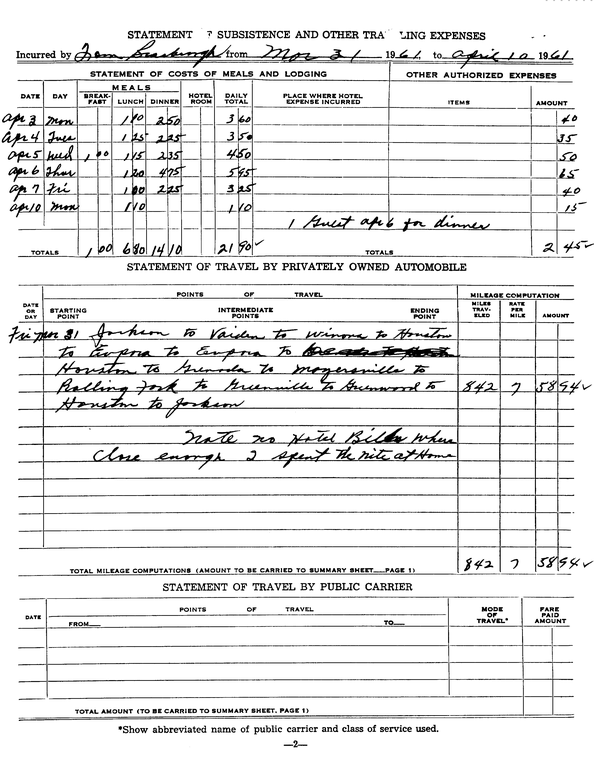 STATEMENT OF SUBSISTENCE AND OTHER TRAVELING EXPENSES
Incurred by Tom from Mar 31 1961, to April 10 1961
STATEMENT OF COSTS OF MEALS AND LODGING OTHER AUTHORIZED EXPENSES
MEALS
DATE DAY BREAK-FAST LUNCH DINNER HOTEL ROOM DAILY TOTAL PLACE WHERE HOTEL EXPENSE INCURRED ITEMS AMOUNT
Apr 3 Mon 1 10 2 50 3 60 40
Apr 4 Tues 1 25 2 25 3 50 35
Apr 5 Wed 1 00 1 15 2 35 4 50 50
Apr 6 Thur 1 20 4 75 5 95 65
Apr 7 Fri 1 00 2 25 3 25 40
Apr 10 Mon 1 10 1 10 15
1 Guest Apr 6 for dinner
TOTALS 1 00 6 80 14 10 21 90 ✓ TOTALS 2 45 ✓
STATEMENT OF TRAVEL BY PRIVATELY OWNED AUTOMOBILE
POINTS OF TRAVEL MILEAGE COMPUTATION
DATE OR DAY STARTING POINT INTERMEDIATE POINTS ENDING POINT MILES TRAV-ELED RATE PER MILE AMOUNT
Fri Mar 31 Jackson to Vaiden to Winona to Houston
to Eupora to Eupora to
Houston to Grenada to Mayersville to
Rolling Fork to Greenville to Greenwood to 842 7 58 94 ✓
Houston to Jackson
Note no Hotel Bills when
Close enough I spent the nite at Home
TOTAL MILEAGE COMPUTATIONS (AMOUNT TO BE CARRIED TO SUMMARY SHEET PAGE 1) 842 7 58 94 ✓
STATEMENT OF TRAVEL BY PUBLIC CARRIER
DATE POINTS OF TRAVEL MODE OF TRAVEL* FARE PAID AMOUNT
FROM TO
TOTAL AMOUNT (TO BE CARRIED TO SUMMARY SHEET, PAGE 1)
*Show abbreviated name of public carrier and class of service used.
—2—